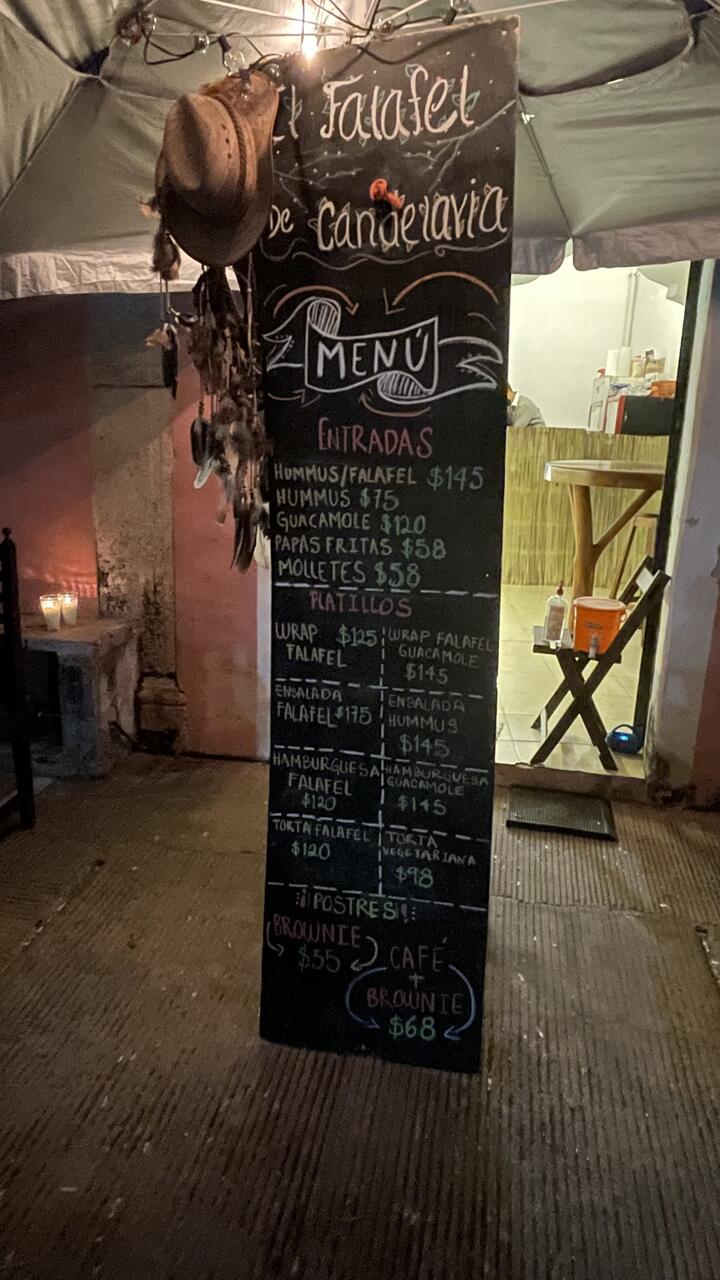 El Falafel
De Candelaria
MENÚ
ENTRADAS
HUMMUS/FALAFEL $145
HUMMUS $75
GUACAMOLE $120
PAPAS FRITAS $58
MOLLETES $58
PLATILLOS
WRAP $125
FALAFEL
WRAP FALAFEL
GUACAMOLE
$145
ENSALADA
FALAFEL $175
ENSALADA
HUMMUS
$145
HAMBURGUESA
FALAFEL
$120
HAMBURGUESA
GUACAMOLE
$145
TORTA FALAFEL
$120
TORTA
VEGETARIANA
$98
¡¡POSTRES!!
BROWNIE
$35
CAFÉ
+
BROWNIE
$68